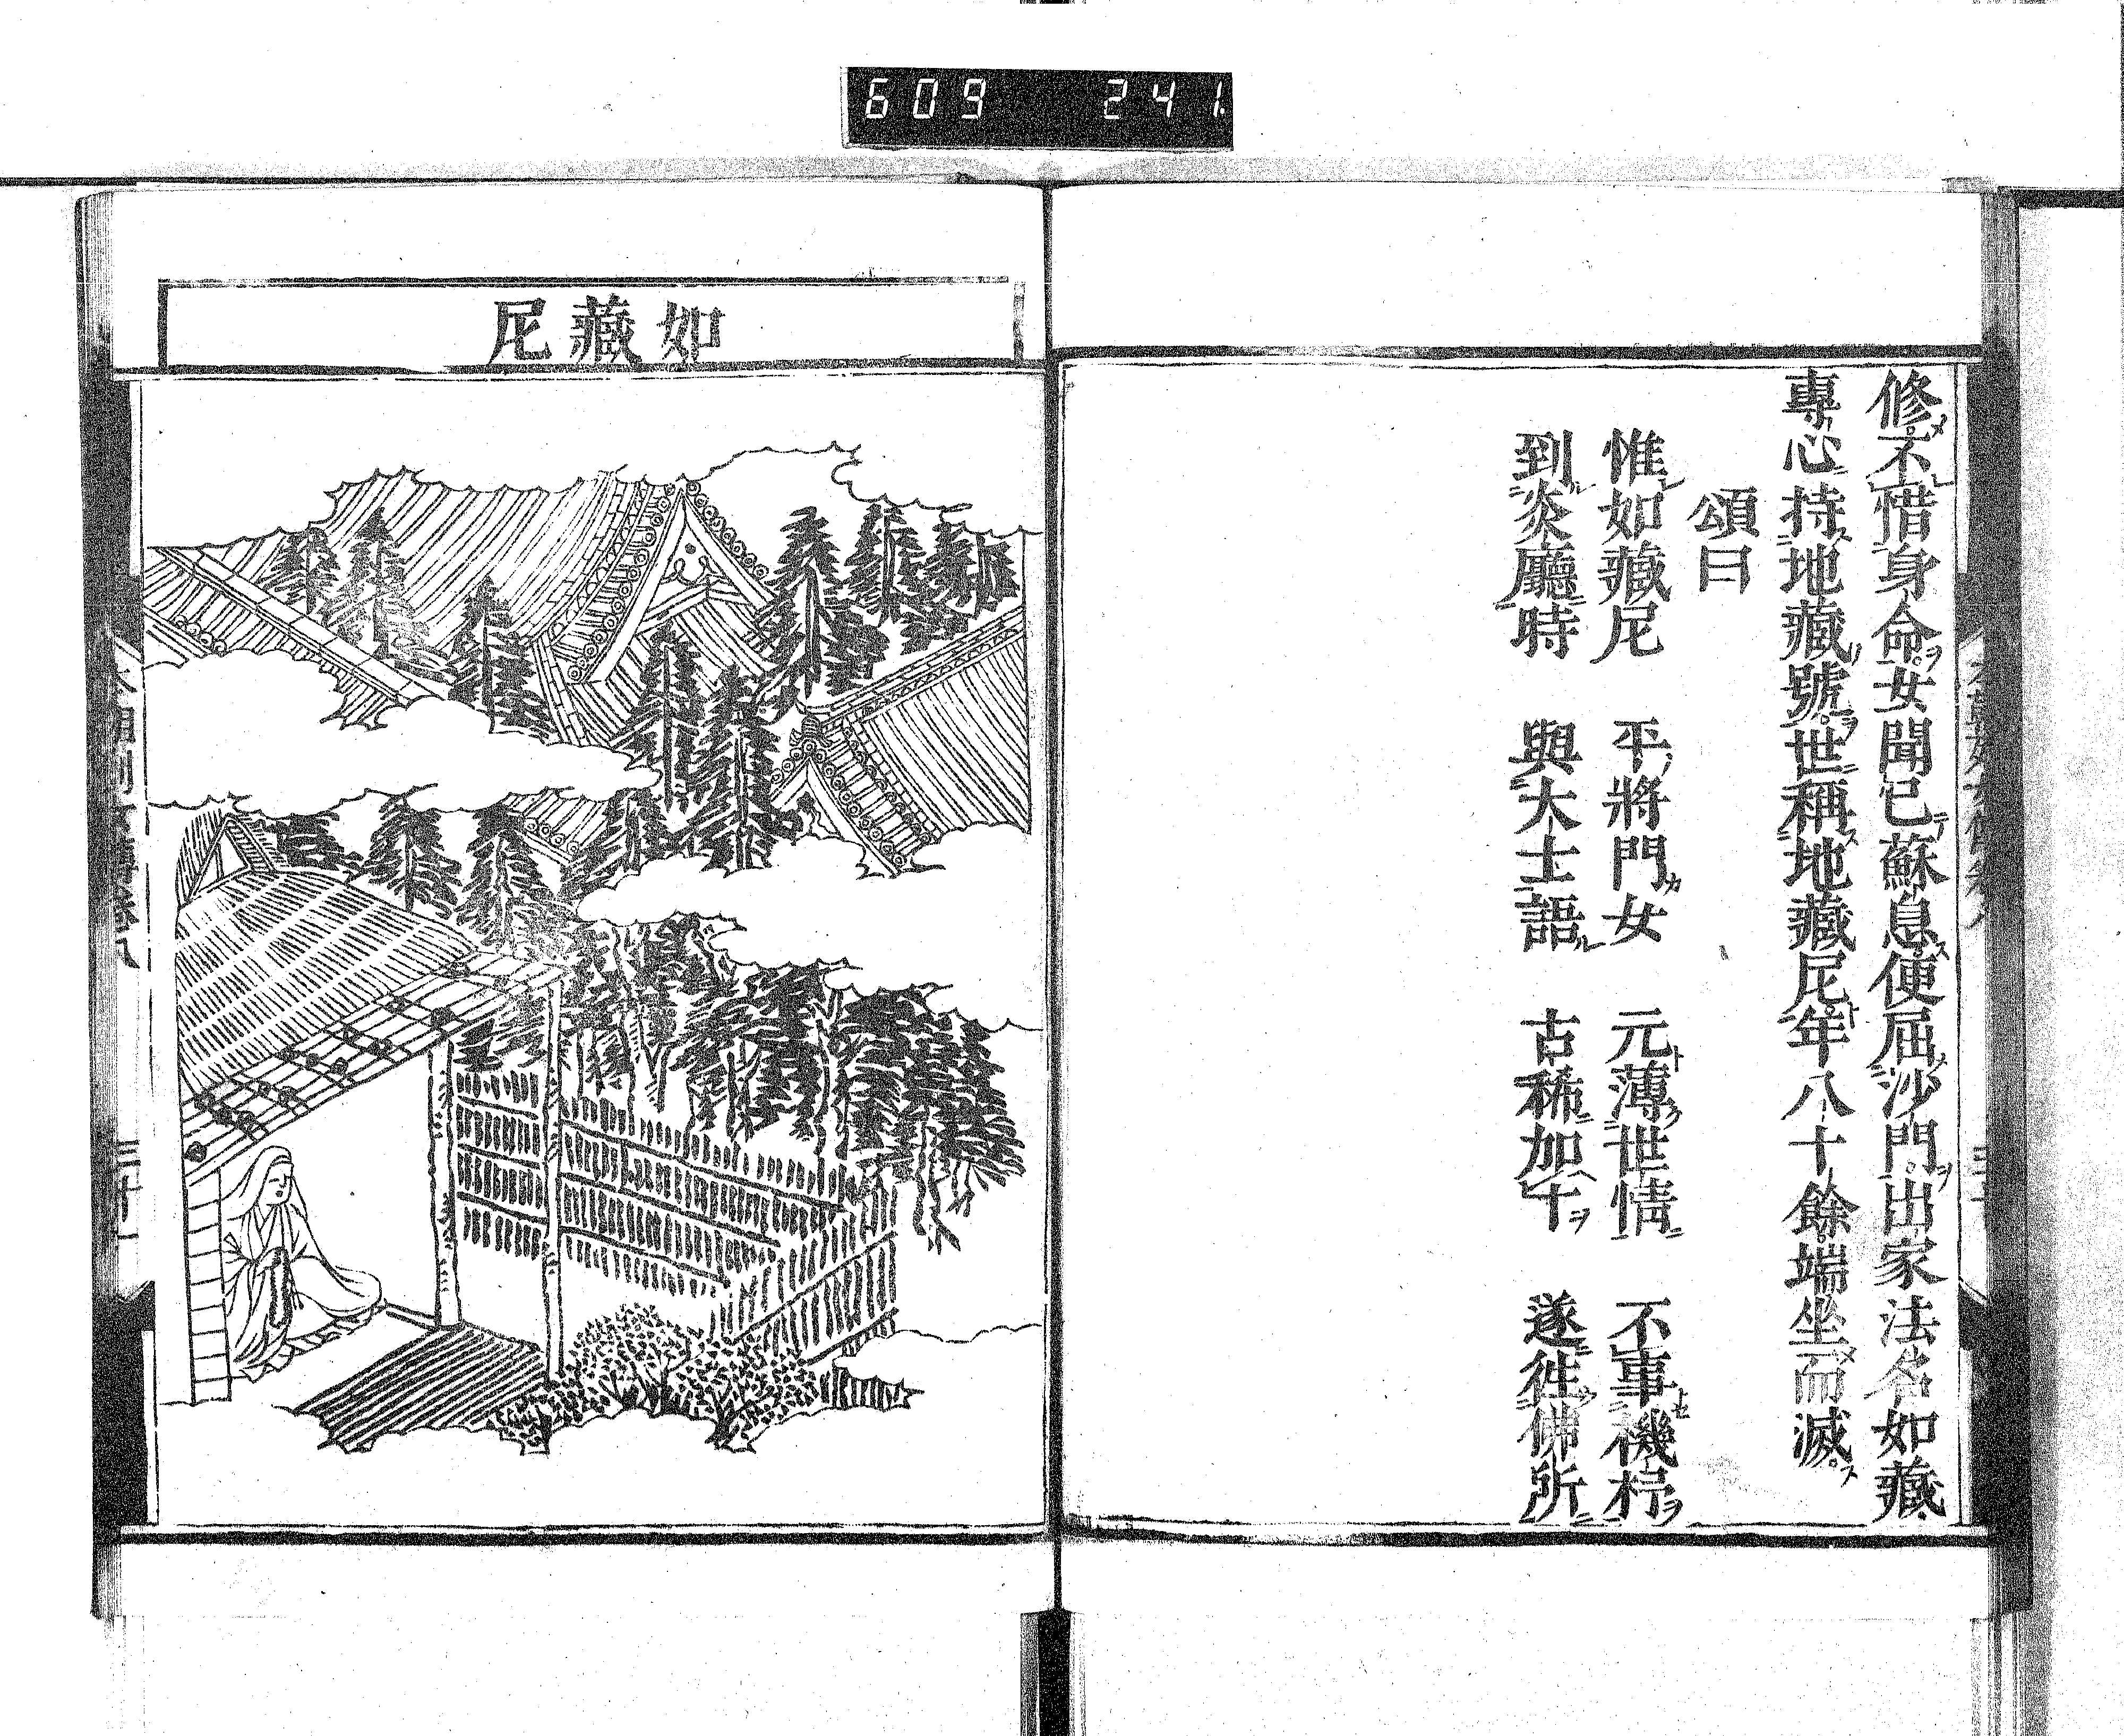 609 241
修不惜身命女聞已蘇息便屈沙門出家法名如藏
專心持地藏號世稱地藏尼年八十餘端坐而滅
頌曰
惟如藏尼 平將門女 元薄世情 不事機杼
到炎廳時 與大士語 古稀加十 遂徃佛所
如藏尼